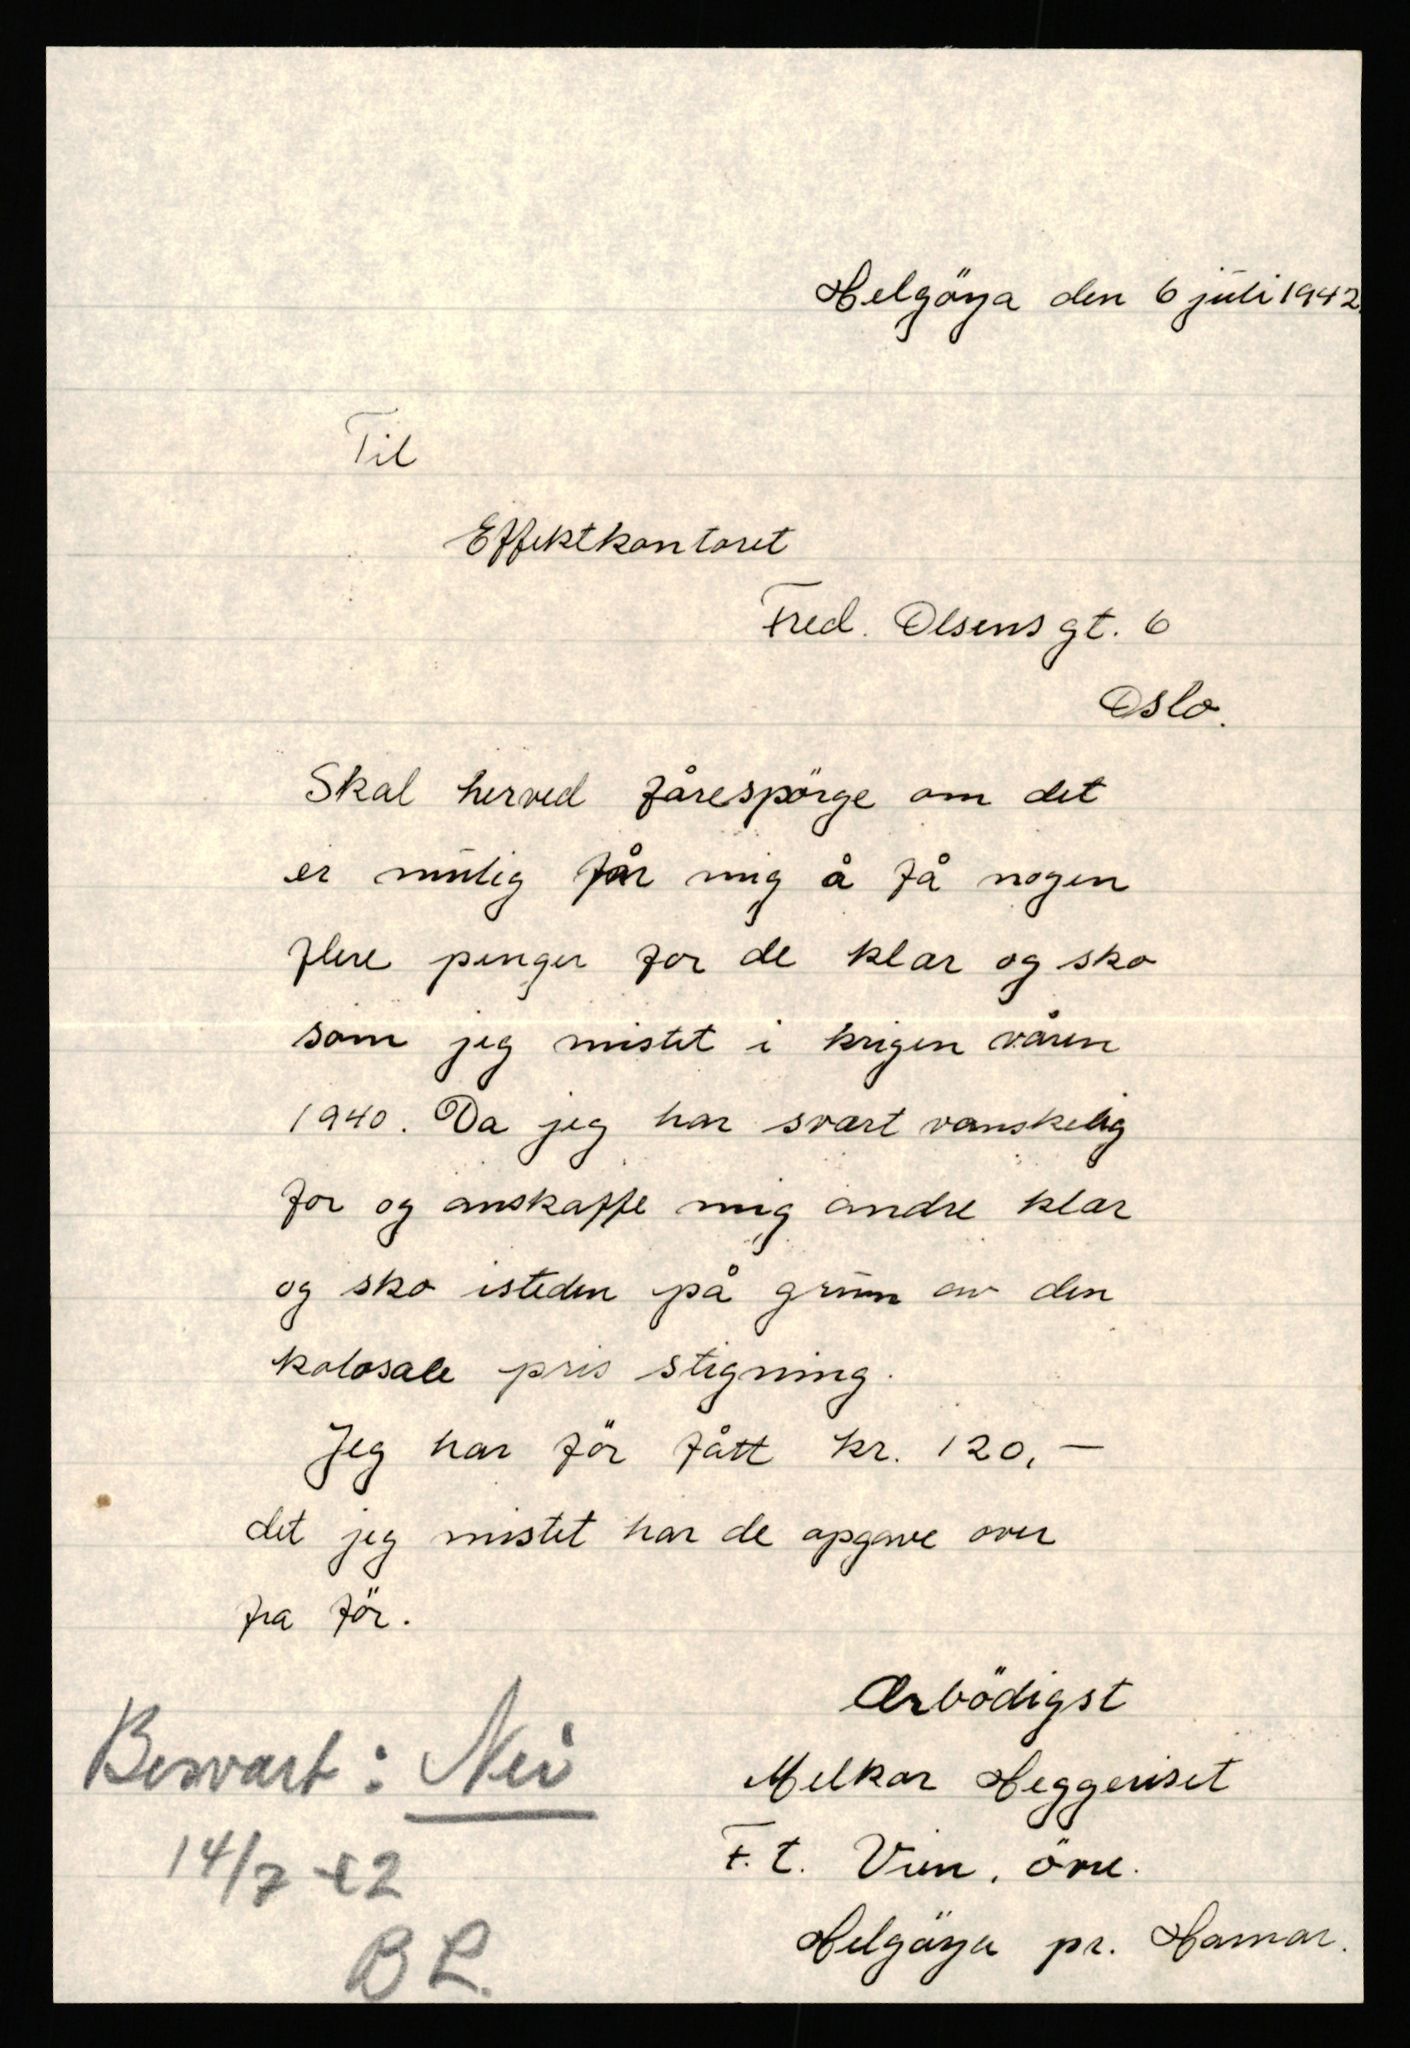 Helgöya den 6 juli 1942.
Til
Effektkontoret
Fred. Olsens gt. 6
Oslo.
Skal herved fårespörge om det
er mulig får mig å få nogen
flere penger for de klær og sko
som jeg mistet i krigen våren
1940. Da jeg har svært vanskelig
for og anskaffe mig andre klær
og sko isteden på grunn av den
kolosale pris stigning.
Jeg har för fått kr. 120,—
det jeg mistet har de opgave over
fra för.
Ærbödigst
Melkor Heggeriset
F. t. Vien, övre.
Helgöya pr. Hamar.
Besvart: Nei
14/7 42
B L.